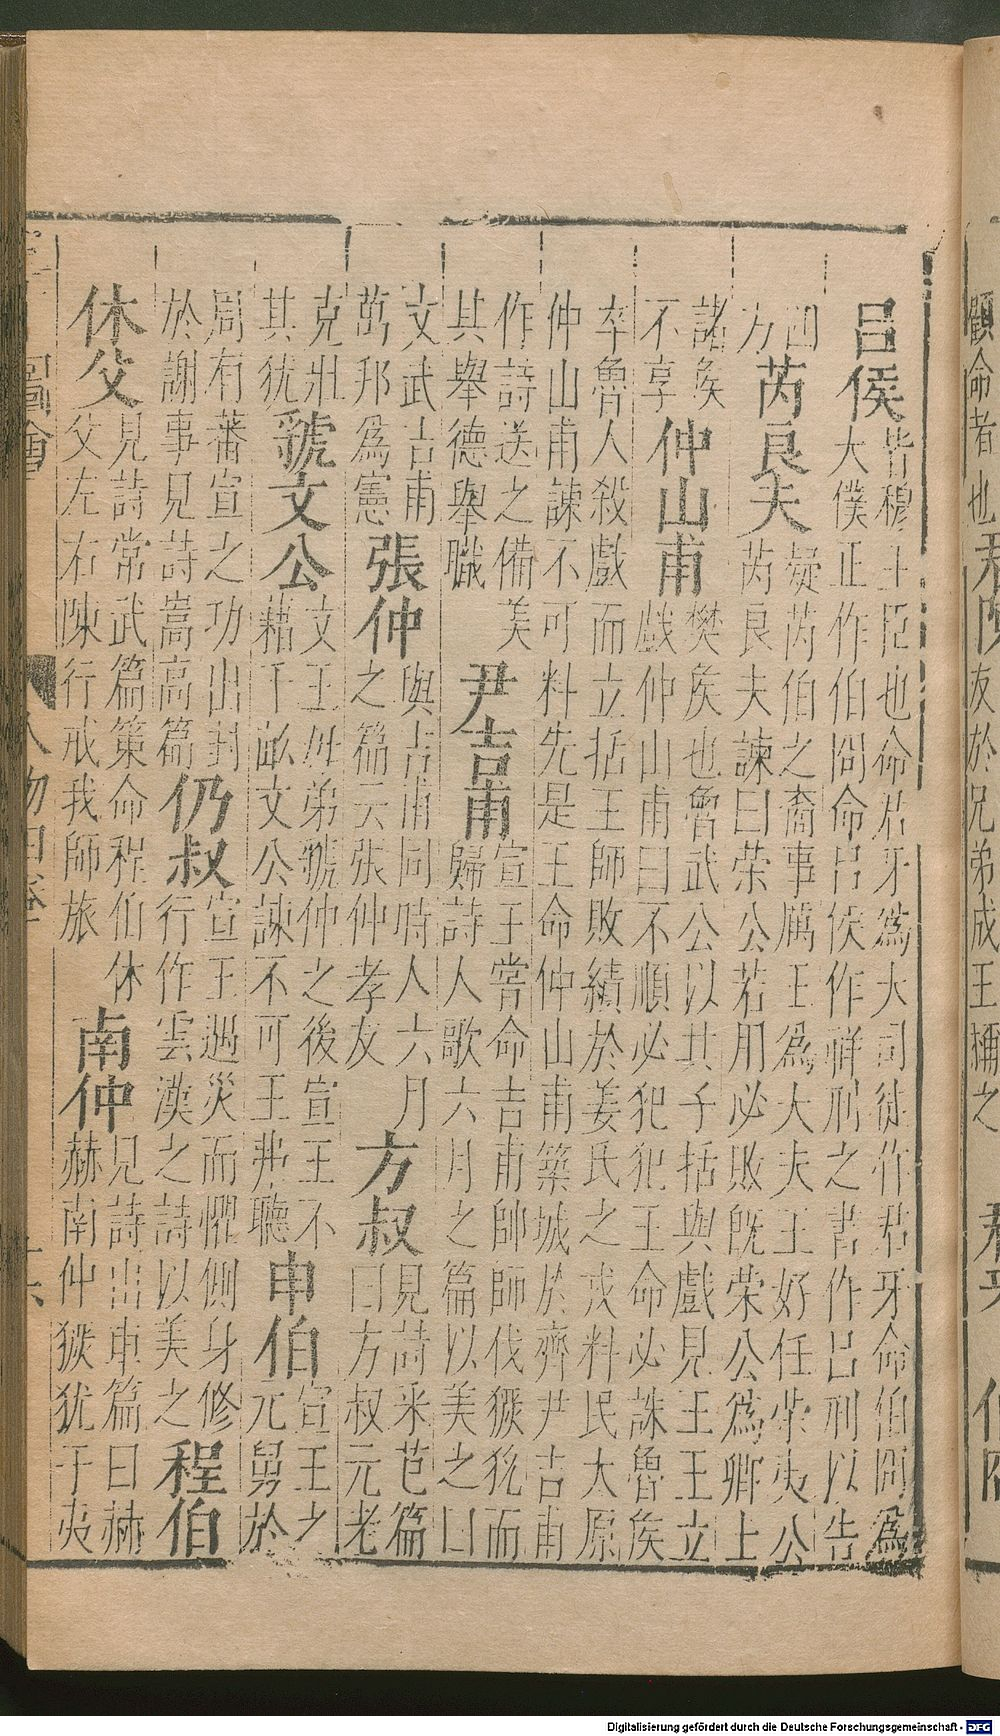 顧命者也
友於兄弟成王彌之
呂侯
皆穆王臣也命君牙爲大司徒作君牙命伯冏爲
大僕正作伯冏命呂侯作祥刑之書作呂刑以告
四
方
芮良夫
疑芮伯之裔事厲王爲大夫王好任榮夷公
芮良夫諫曰荣公若用必敗旣荣公爲卿上
諸侯
不享
仲山甫
樊侯也魯武公以其子括與戲見王王立
戲仲山甫曰不順必犯犯王命必誅魯侯
卒魯人殺戲而立括王師敗績於姜氏之戎料民太原
仲山甫諫不可料先是王命仲山甫築城於齊尹吉甫
作詩送之備美
其舉德舉職
尹吉甫
宣王嘗命吉甫帥師伐玁狁而
歸詩人歌六月之篇以美之曰
文武吉甫
萬邦爲憲
張仲
與吉甫同時人六月
之篇云張仲孝友
方叔
見詩采芑篇
曰方叔元老
克壯
其犹
虢文公
文王母弟虢仲之後宣王不
藉千畝文公諫不可王弗聽
申伯
宣王之
元舅於
周有蕃宣之功出封
於謝事見詩嵩高篇
仍叔
宣王遇災而懼側身修
行作雲漢之詩以美之
程伯
休父
見詩常武篇策命程伯休
父左右陳行戒我師旅
南仲
見詩出車篇曰赫
赫南仲玁狁于夷
圖會
人物四卷
Digitalisierung gefördert durch die Deutsche Forschungsgemeinschaft - DFG